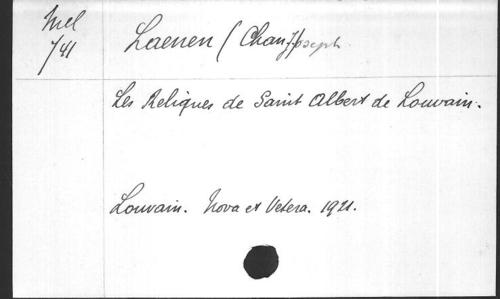 Mel
/41
Laenen (Chan.) Joseph.
Les Reliques de Saint Albert de Louvain.
Louvain. Nova et Vetera. 1921.